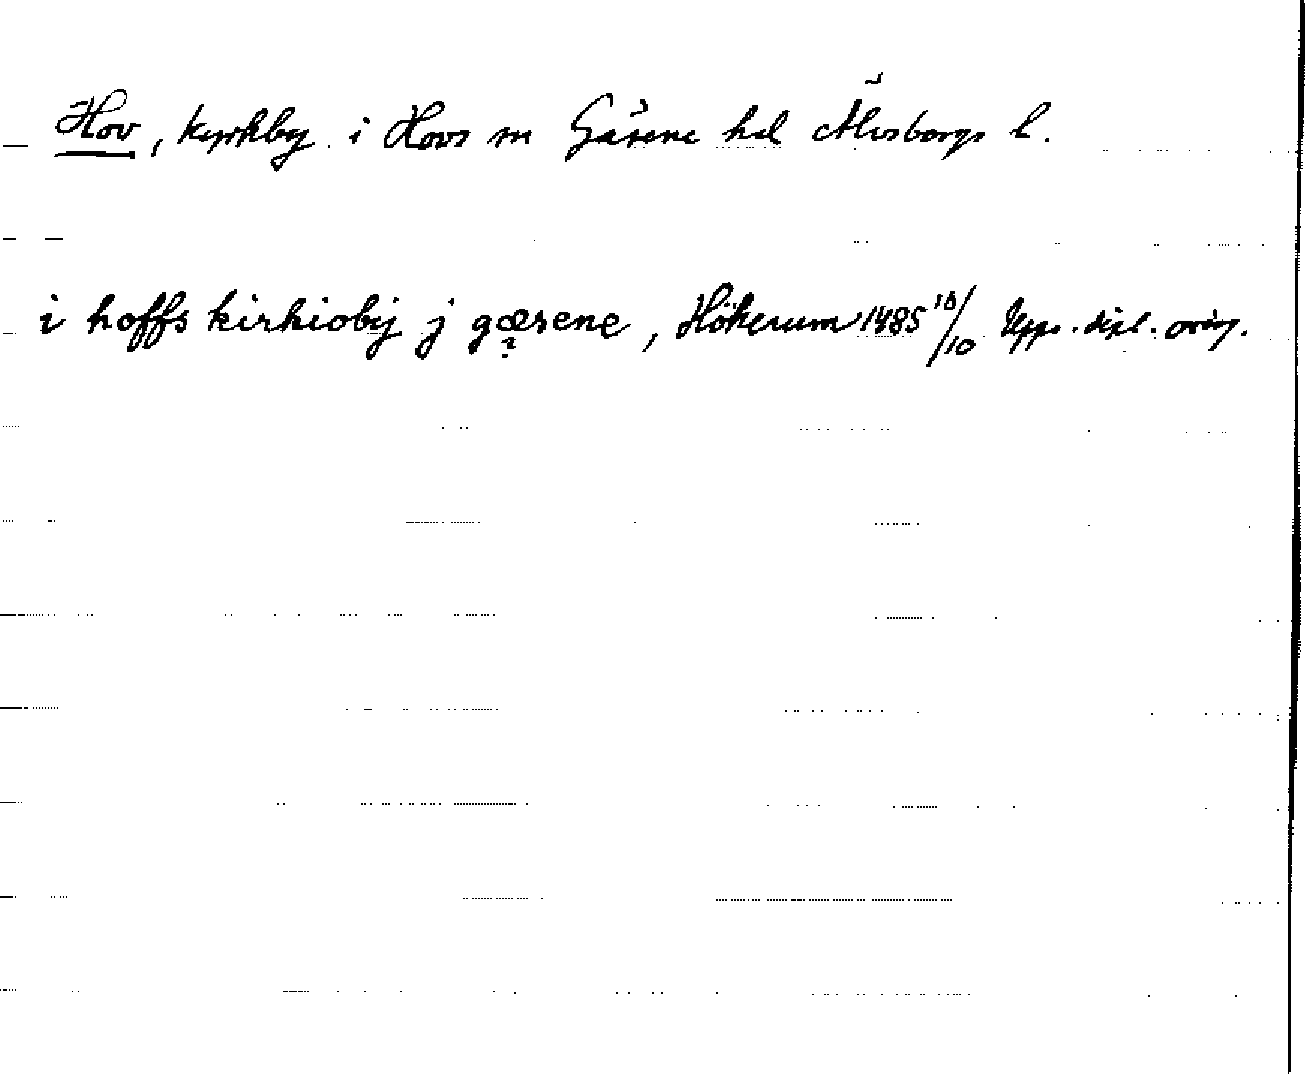 Hov, kyrkby i Hovs sn Gäsene hd Älvsborgs l.
i hoffs kirkioby j gæsene, Hökerum 1485 18/10 Upps. dipl. orig.